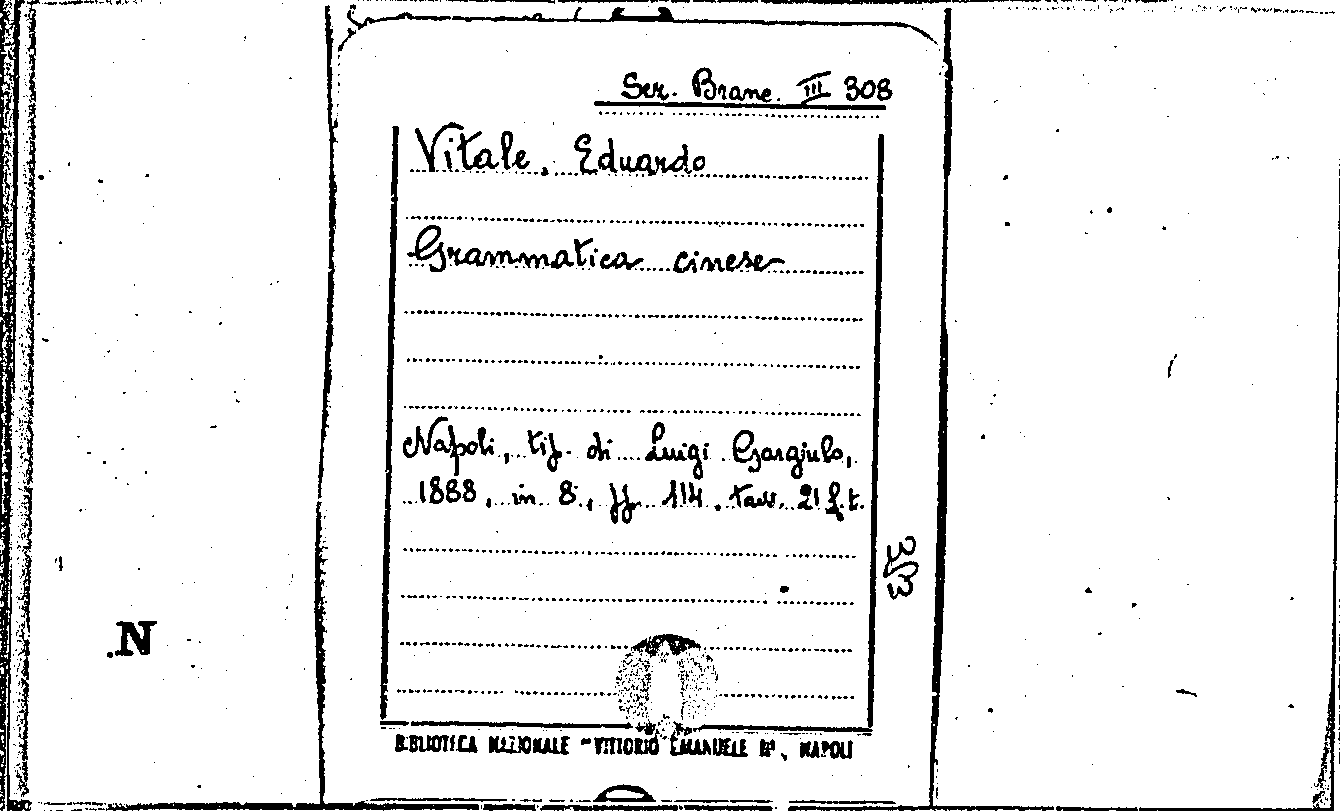 Ser. Branc. III 308
Vitale, Eduardo
Grammatica cinese
Napoli, tip. di Luigi Gargiulo,
1888, in 8°, pp. 114. tavv. 21 f.t.
N
BIBLIOTECA NAZIONALE "VITTORIO EMANUELE III", NAPOLI